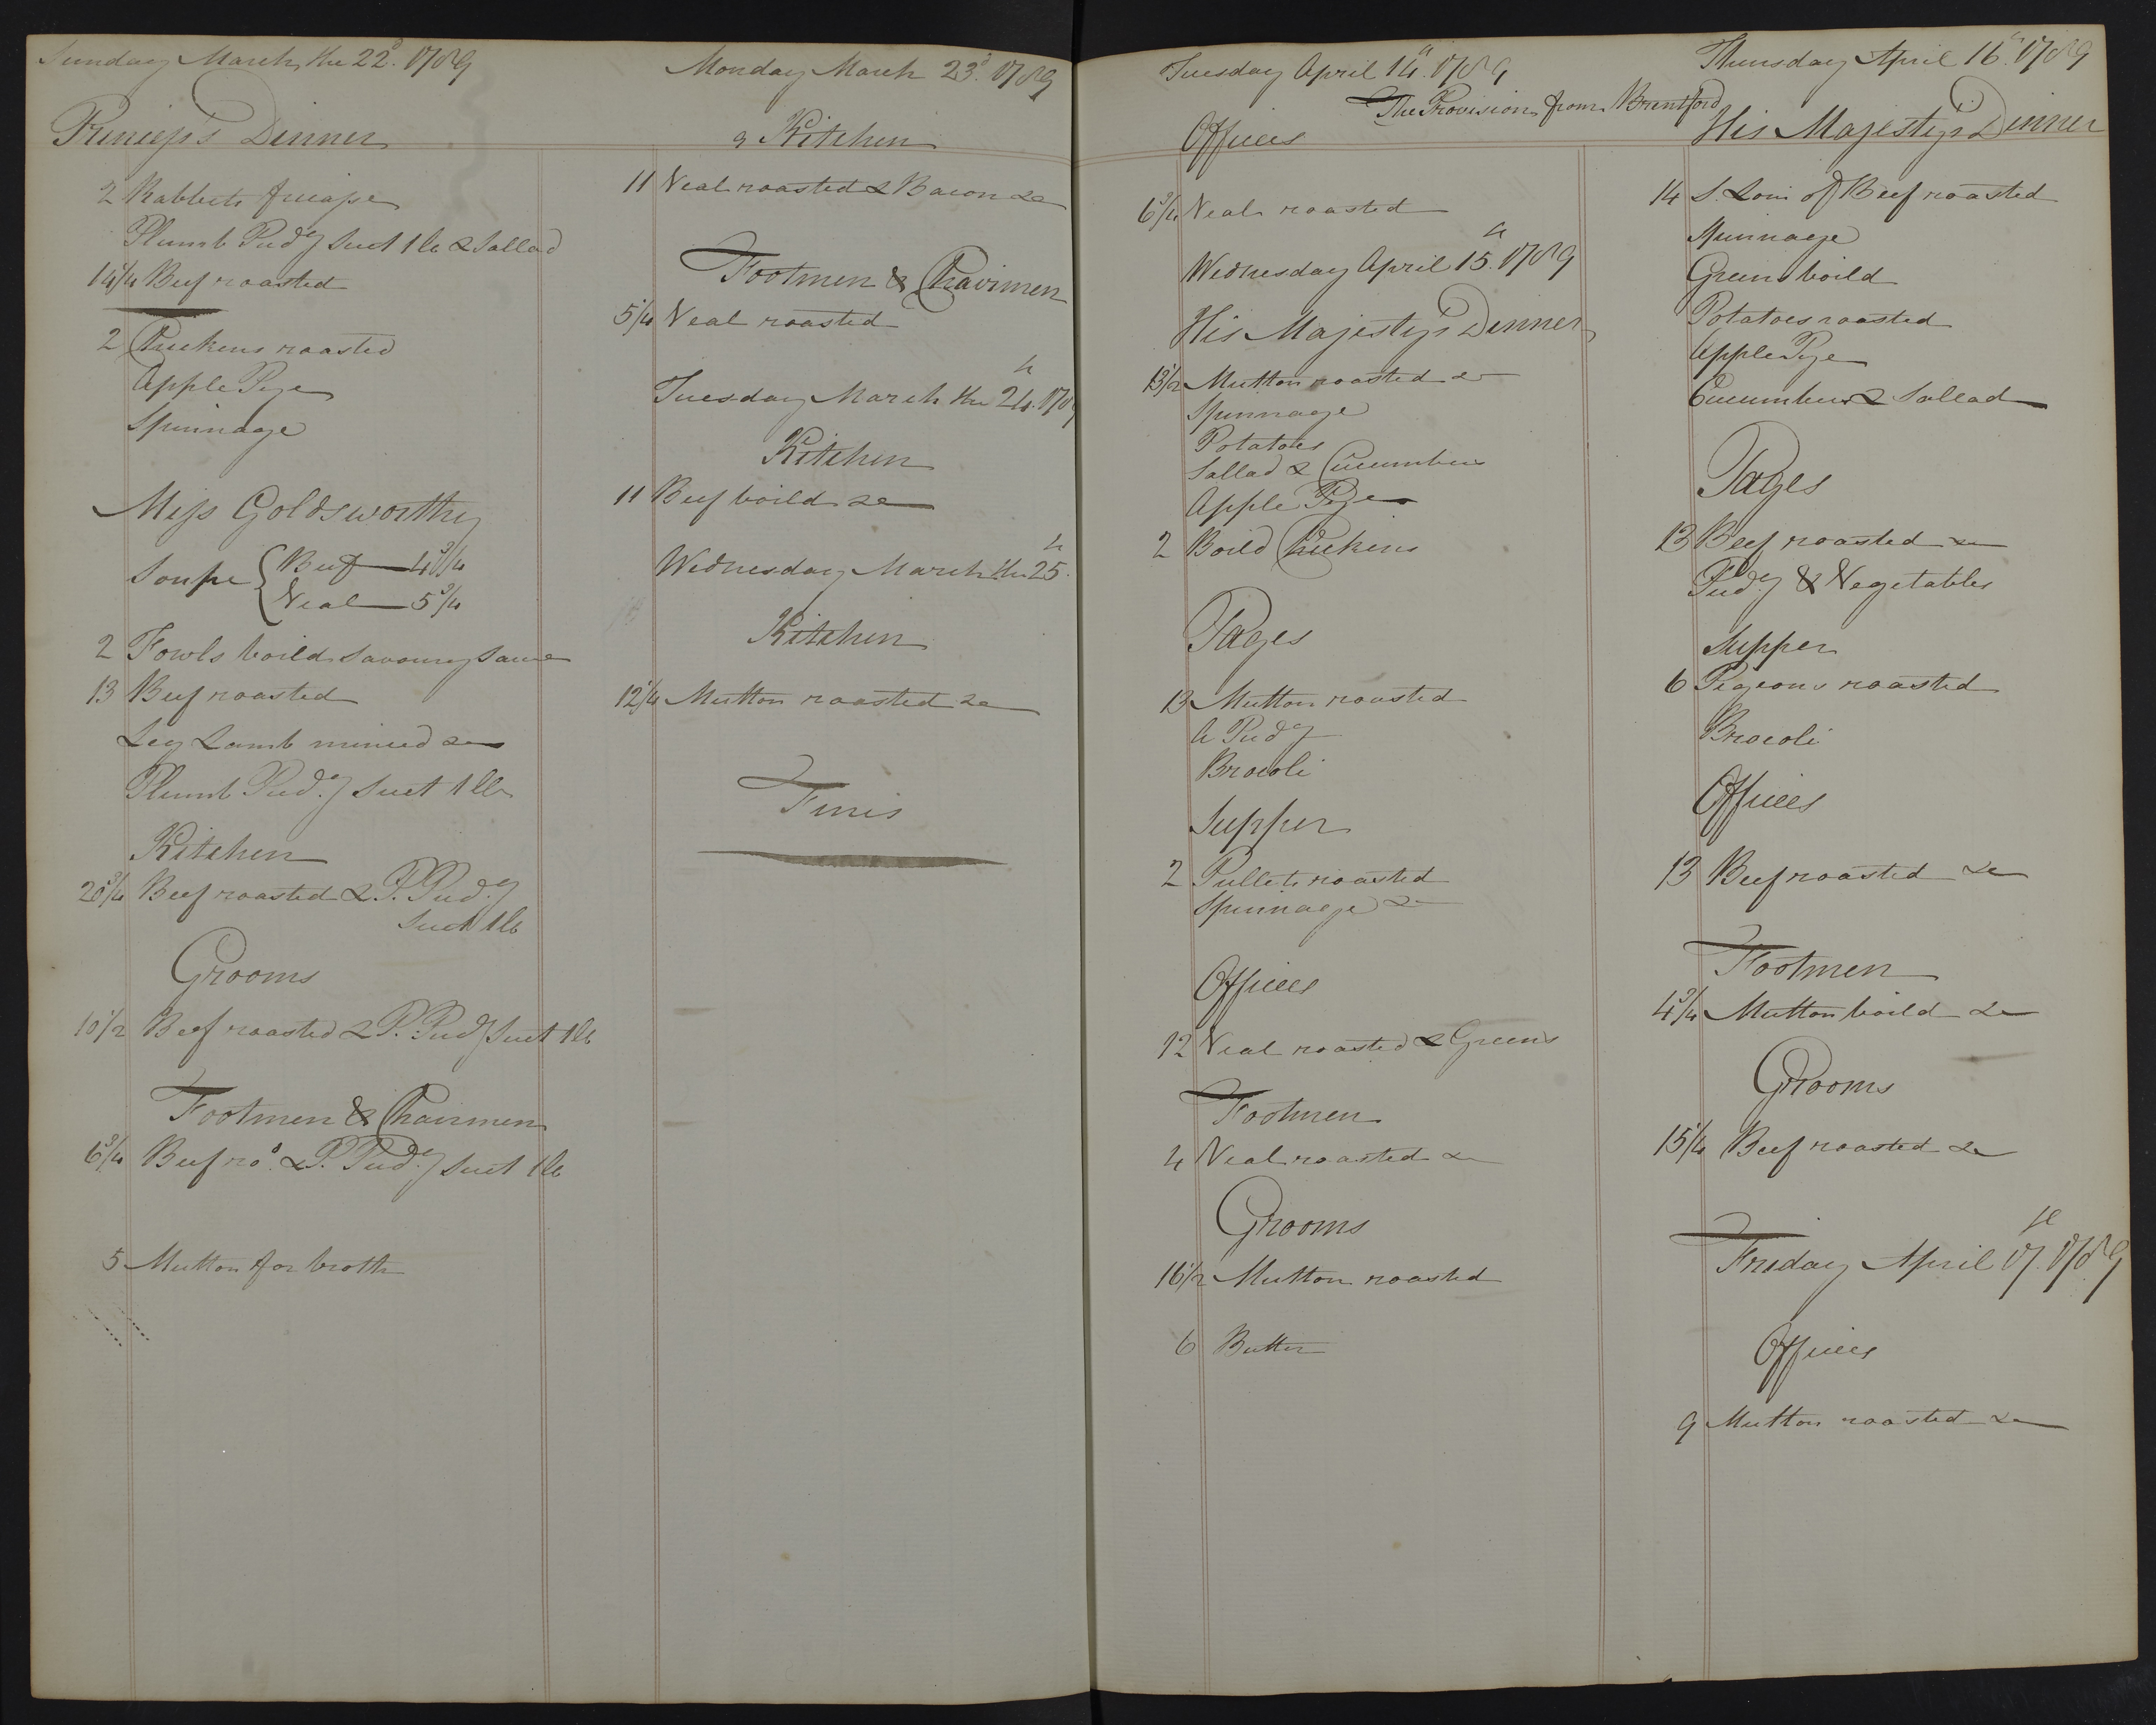 Sunday March the 22d. 1789
Princess's Dinner
2 Rabbets fricasse
Plumb Pudg Suet 1 lb & Sallad
14 1/4 Beef roasted
2 Chickens roasted
Apple Pye
Spinnage
Miss Goldsworthy
Soupe { Beef 4 3/4
Veal 5 3/4
2 Fowls boild Savoury Sauce
13 Beef roasted
Leg Lamb minced &c
Plumb Pud.g Suet 1 lb
Kitchen
20 3/4 Beef roasted & P. Pud.g
Suet 1 lb
Grooms
10 1/2 Beef roasted & P. Pudg Suet 1 lb
Footmen & Chairmen
6 3/4 Beef rod. & P. Pud.g Suet 1 lb
5 Mutton for broth
Monday March 23d. 1789
Kitchen
11 Veal roasted & Bacon &c
Footmen & Chairmen
5 1/4 Veal roasted
Tuesday March the 24th. 1789
Kitchen
11 Beef boild &c
Wednesday March the 25th.
Kitchen
12 1/4 Mutton roasted &c
Finis
Tuesday April 14th. 1789
The Provisions from Brentford
Offices
6 3/4 Veal roasted
Wednesday April 15th. 1789
His Majesty's Dinner
13 1/2 Mutton roasted &c
Spinnage
Potatoes
Sallad & Cucumbers
Apple Pye
2 Boild Chickens
Pages
13 Mutton roasted
A Pudg
Brocoli
Supper
2 Pullets roasted
Spinnage &c
Offices
12 Veal roasted & Greens
Footmen
4 Veal roasted &c
Grooms
16 1/2 Mutton roasted
6 Butter
Thursday April 16th. 1789
His Majesty's Dinner
14 S. Loin of Beef roasted
Spinnage
Greens boild
Potatoes roasted
Apple Pye
Cucumbers & Sallad
Pages
13 Beef roasted &c
Pud.g & Vegetables
Supper
6 Pigeons roasted
Brocoli
Offices
13 Beef roasted &c
Footmen
4 3/4 Mutton boild &c
Grooms
15 1/4 Beef roasted &c
Friday April 17th. 1789
Offices
9 Mutton roasted &c